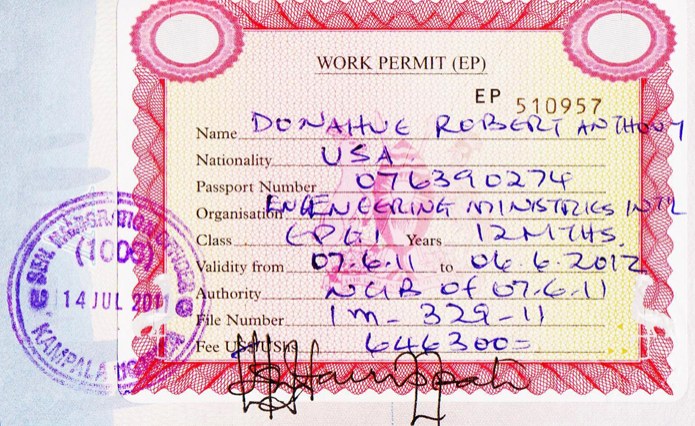 WORK PERMIT (EP)
EP 510957
Name DONAHUE ROBERT ANTHONY
Nationality USA
Passport Number 076390274
Organisation ENGENEERING MINISTRIES INT'L
Class EPG1 Years 12 MTHS.
Validity from 07.6.11 to 06.6.2012
Authority NCIB of 07.6.11
File Number 1m-329-11
Fee US/USHS 646300=
(1006)
14 JUL 2011
KAMPALA